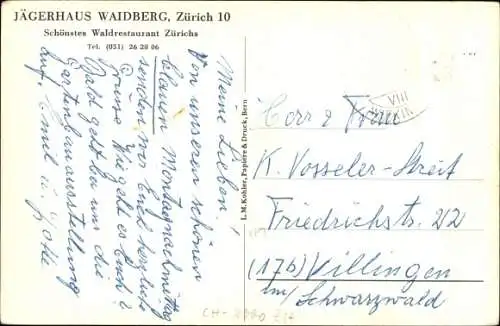 JÄGERHAUS WAIDBERG, Zürich 10
Schönstes Waldrestaurant Zürichs
Tel. (051) 26 28 06
Meine Lieben!
Von unserem schönen
blauen Montagnachmittag
senden wir Euch herzliche
Grüsse. Wie geht es Euch?
Bald geht bei uns die
Gartenbauausstellung
auf. Emil u.
L. M. Kohler, Papiere & Druck, Bern
VIII
Herr & Frau
K. Vosseler-Streit
Friedrichstr. 22
(17b) Villingen
im/Schwarzwald
CH-8000